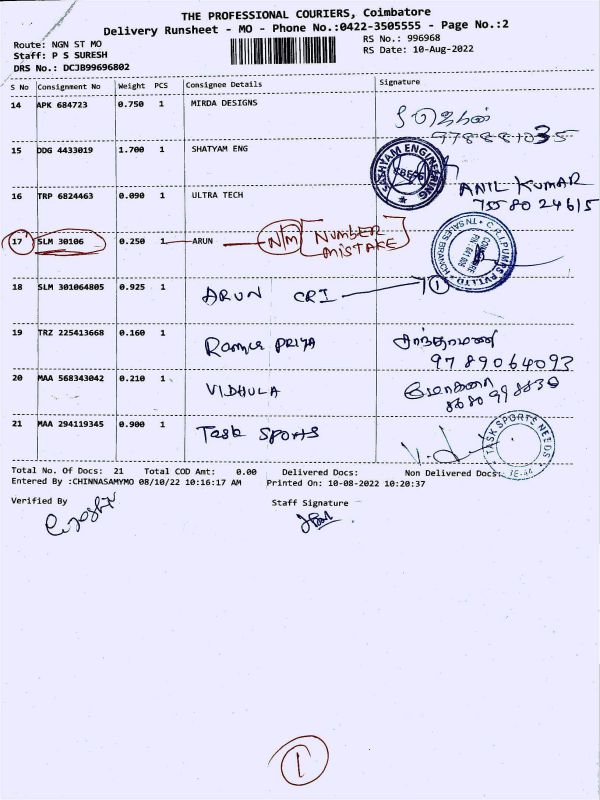 THE PROFESSIONAL COURIERS, Coimbatore
Delivery Runsheet - MO - Phone No.:0422-3505555 - Page No.:2
Route: NGN ST MO
RS No.: 996968
Staff: P S SURESH
RS Date: 10-Aug-2022
DRS No.: DCJB99696802
S No Consignment No Weight PCS Consignee Details Signature
14 APK 684723 0.750 1 MIRDA DESIGNS
15 DDG 4433019 1.700 1 SHATYAM ENG
ANIL KUMAR
7558024615
16 TRP 6824463 0.090 1 ULTRA TECH
17 SLM 30106 0.250 1 ARUN N/M [NUMBER MISTAKE]
18 SLM 301064805 0.925 1 ARUN CRI 1
19 TRZ 225413668 0.160 1 Ramya PRIYA
9789064093
20 MAA 568343042 0.210 1 VIDHULA
21 MAA 294119345 0.900 1 Task SPORTS
TASK SPORTS NEEDS
Total No. Of Docs: 21 Total COD Amt: 0.00 Delivered Docs: Non Delivered Docs:
Entered By :CHINNASAMYMO 08/10/22 10:16:17 AM Printed On: 10-08-2022 10:20:37
Verified By Staff Signature
1